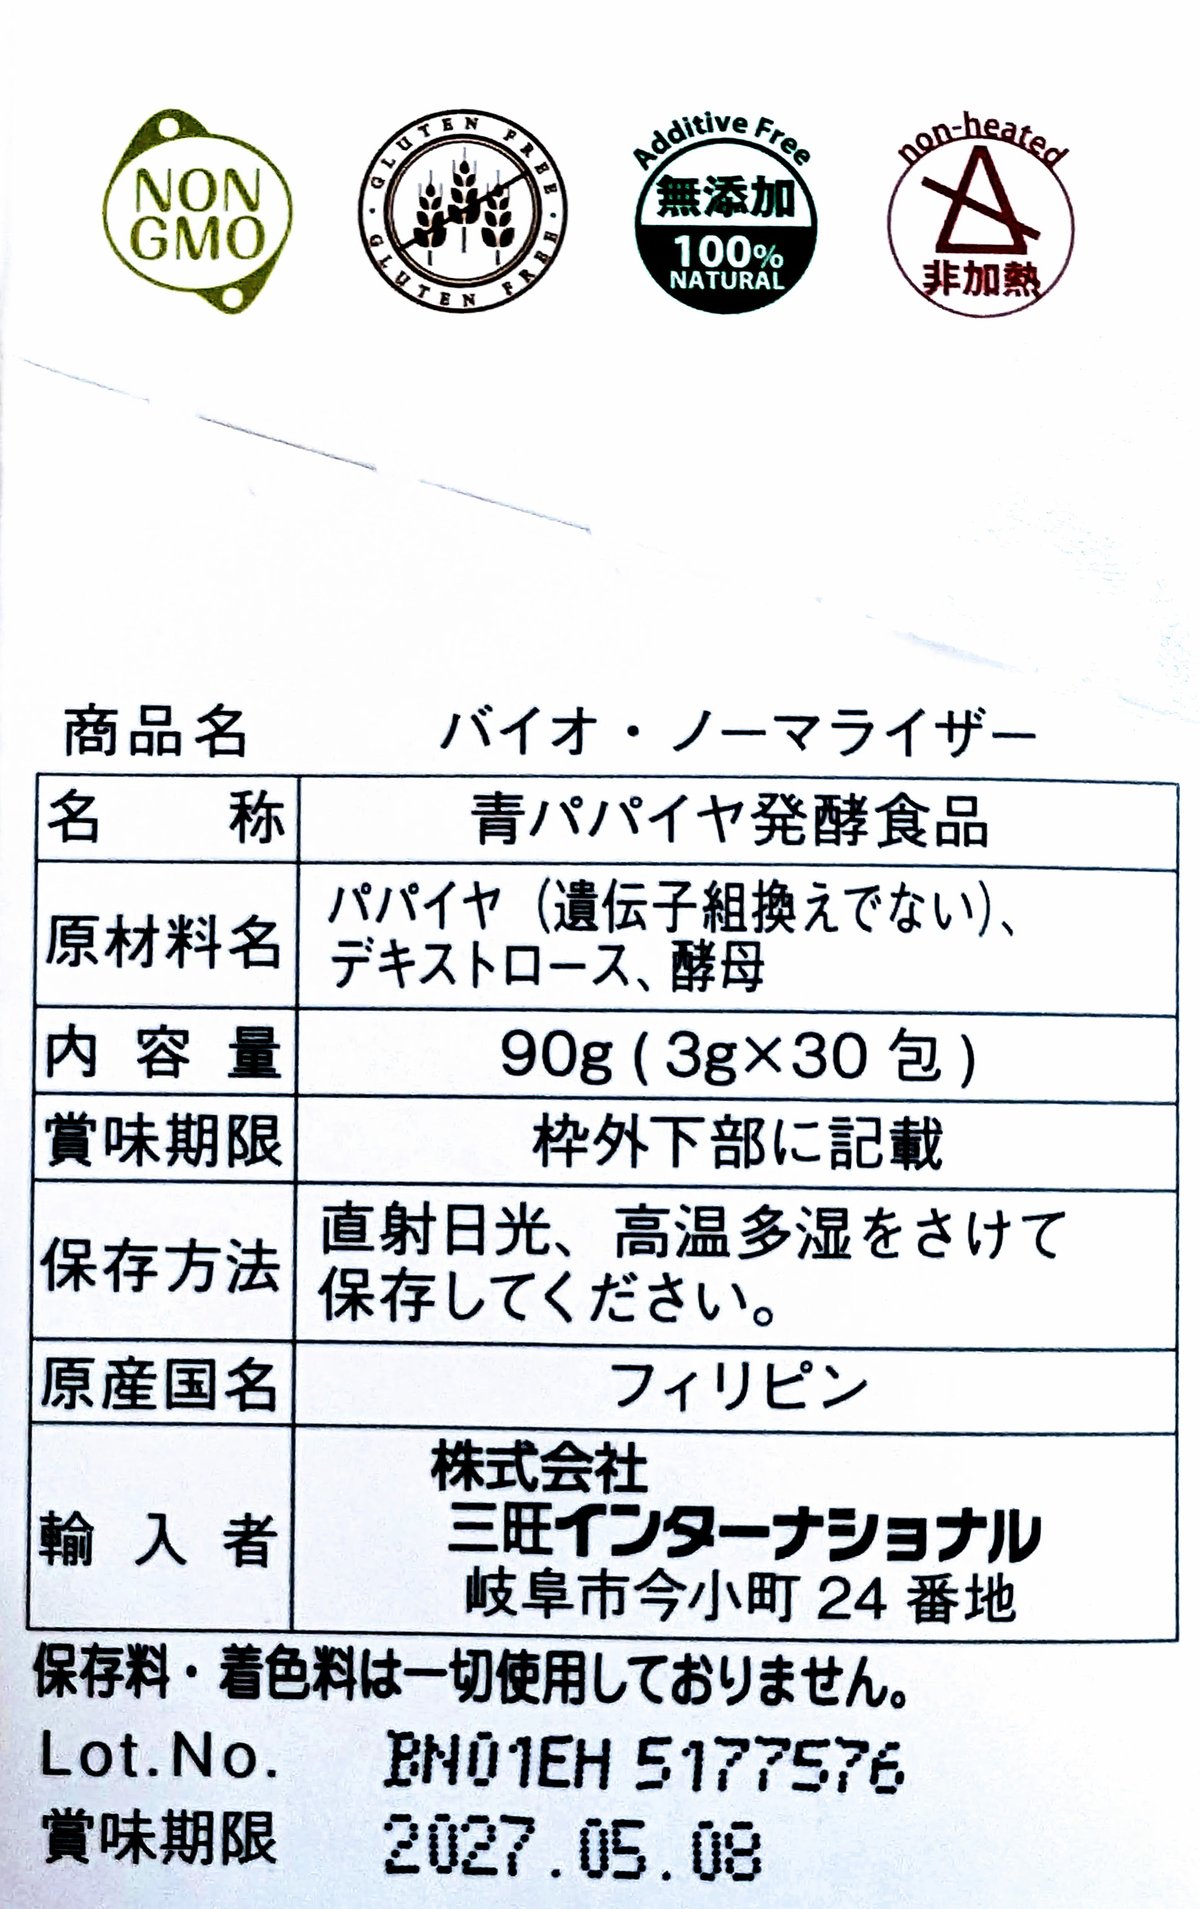 NON
GMO
GLUTEN FREE · GLUTEN FREE ·
Additive Free
無添加
100%
NATURAL
non-heated
非加熱
商品名 バイオ・ノーマライザー
名称 青パパイヤ発酵食品
原材料名 パパイヤ（遺伝子組換えでない）、
デキストロース、酵母
内容量 90g ( 3g×30 包 )
賞味期限 枠外下部に記載
保存方法 直射日光、高温多湿をさけて
保存してください。
原産国名 フィリピン
輸入者 株式会社
三旺インターナショナル
岐阜市今小町 24 番地
保存料・着色料は一切使用しておりません。
Lot.No. BN01EH 5177576
賞味期限 2027.05.08